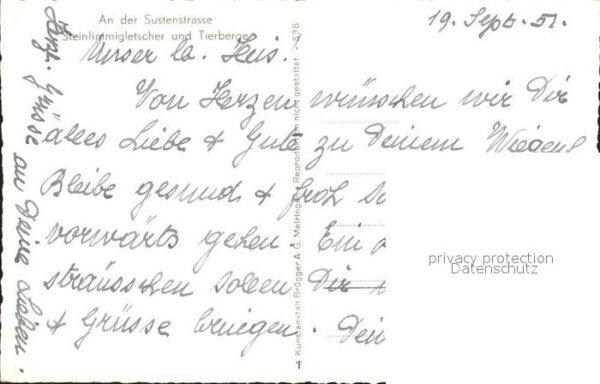 An der Sustenstrasse
Steinlimmigletscher und Tierberge
19. Sept. 51.
Unser lb. Heis.
Von Herzen wünschen wir Dir
alles Liebe & Gute zu Deinem Wiegen
Bleibe gesund & froh so
vorwärts gehen Ein
strausschen sollen Dir
& Grüsse bringen. Dein
Herzl. Grüsse an Deine Lieben.
Kunstanstalt Brügger A. G. Meiringen Reproduktion nicht gestattet
privacy protection
Datenschutz